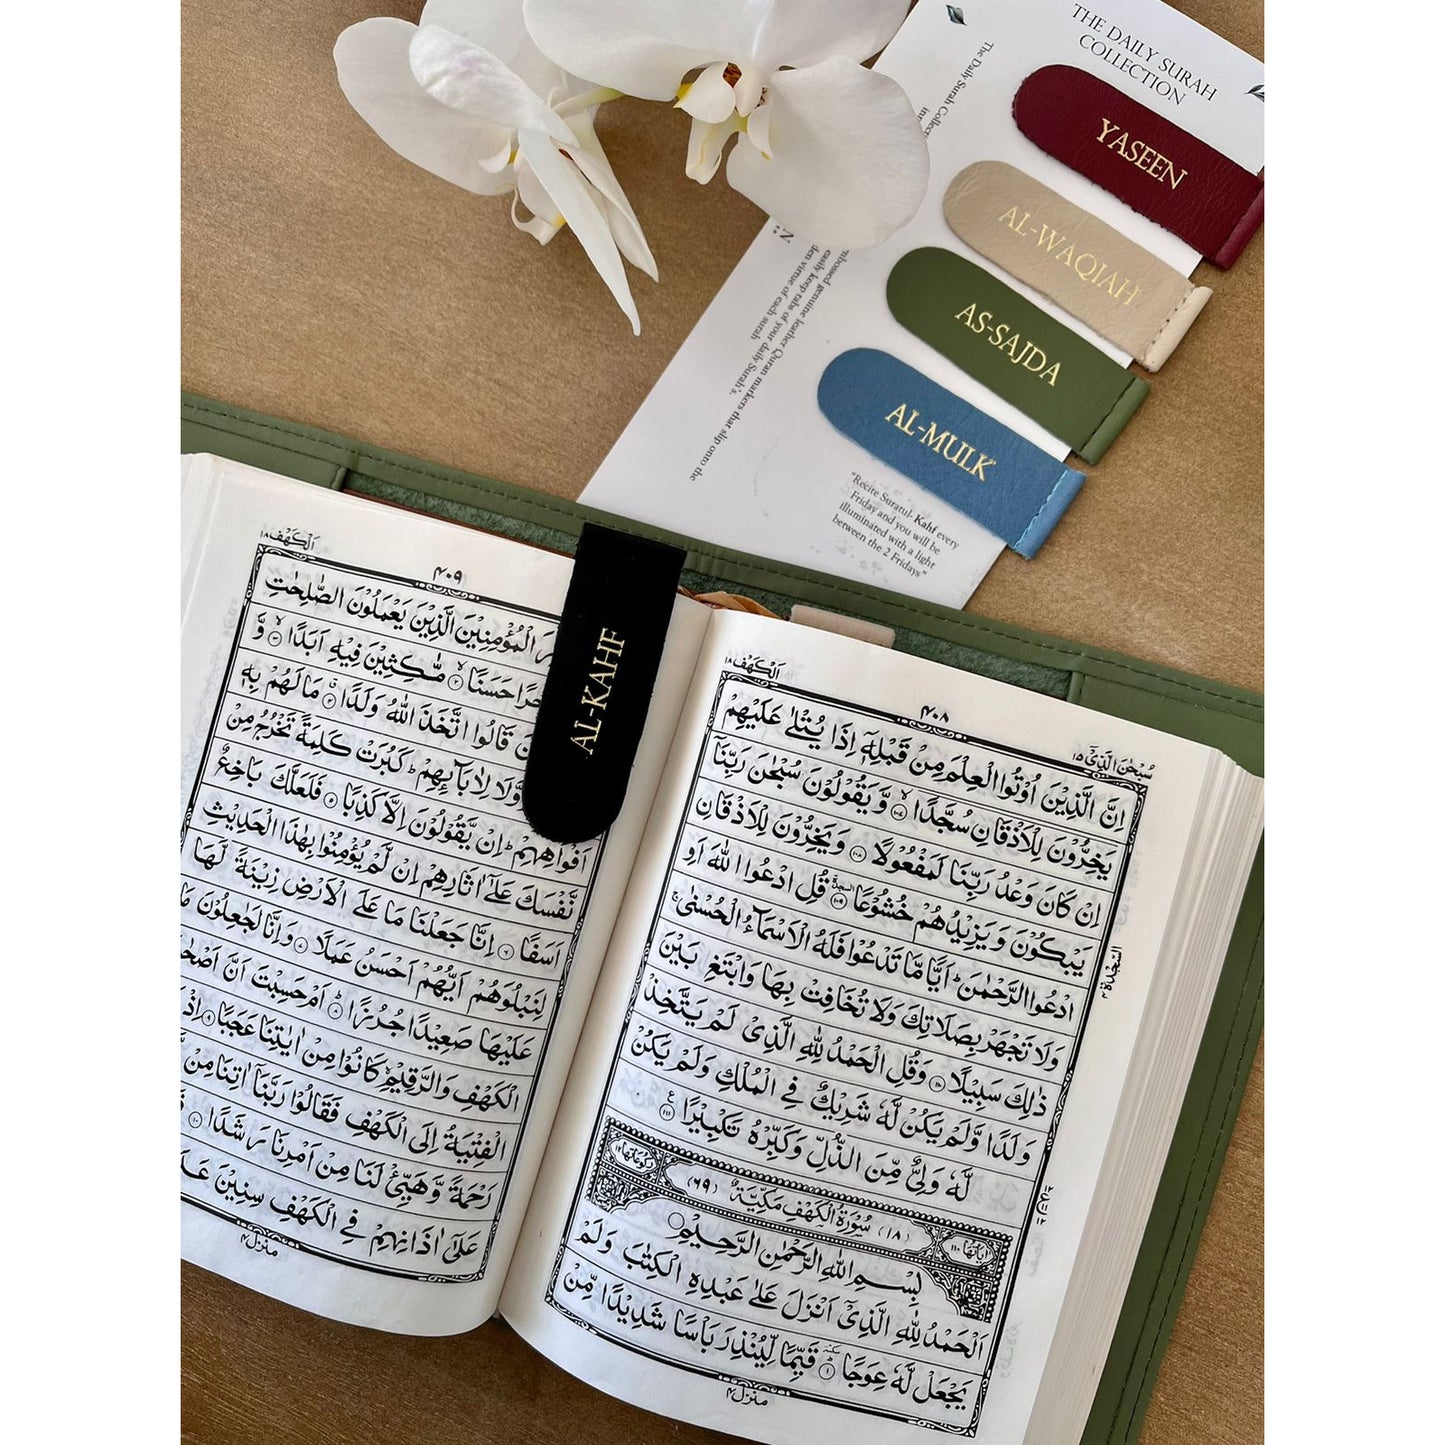 THE DAILY SURAH
COLLECTION
The Daily Surah Collecti
YASEEN
AL-WAQIAH
AS-SAJDA
AL-MULK
mbossed genuine leather Quran markers that slip onto the
easily keep tabs of your daily Surah's,
den virtue of each surah
"Recite Suratul- Kahf every
Friday and you will be
illuminated with a light
between the 2 Fridays"
AL-KAHF
سُبْحٰنَ الَّذِيْٓ ١٥
٤٠٨
اَلْكَهْف ١٨
اِنَّ الَّذِيْنَ اُوْتُوا الْعِلْمَ مِنْ قَبْلِهٖٓ اِذَا يُتْلٰى عَلَيْهِمْ
يَخِرُّوْنَ لِلْاَذْقَانِ سُجَّدًا ۝١٠٧ وَّيَقُوْلُوْنَ سُبْحٰنَ رَبِّنَآ
اِنْ كَانَ وَعْدُ رَبِّنَا لَمَفْعُوْلًا ۝١٠٨ وَيَخِرُّوْنَ لِلْاَذْقَانِ
يَبْكُوْنَ وَيَزِيْدُهُمْ خُشُوْعًا ۝١٠٩ قُلِ ادْعُوا اللّٰهَ اَوِ
ادْعُوا الرَّحْمٰنَ ؕ اَيًّا مَّا تَدْعُوْا فَلَهُ الْاَسْمَآءُ الْحُسْنٰى ۚ
وَلَا تَجْهَرْ بِصَلَاتِكَ وَلَا تُخَافِتْ بِهَا وَابْتَغِ بَيْنَ
ذٰلِكَ سَبِيْلًا ۝١١٠ وَقُلِ الْحَمْدُ لِلّٰهِ الَّذِيْ لَمْ يَتَّخِذْ
وَلَدًا وَّلَمْ يَكُنْ لَّهٗ شَرِيْكٌ فِي الْمُلْكِ وَلَمْ يَكُنْ
لَّهٗ وَلِيٌّ مِّنَ الذُّلِّ وَكَبِّرْهُ تَكْبِيْرًا ۝١١١
اٰيَاتُهَا ١١٠ (١٨) سُوْرَةُ الْكَهْفِ مَكِّيَّةٌ (٦٩) رُكُوْعَاتُهَا ١٢
بِسْمِ اللّٰهِ الرَّحْمٰنِ الرَّحِيْمِ
اَلْحَمْدُ لِلّٰهِ الَّذِيْٓ اَنْزَلَ عَلٰى عَبْدِهِ الْكِتٰبَ وَلَمْ
يَجْعَلْ لَّهٗ عِوَجًا ۝١ قَيِّمًا لِّيُنْذِرَ بَاْسًا شَدِيْدًا مِّنْ
منزل ٤
السجدة ٤
اَلْكَهْف ١٨
٤٠٩
الْمُؤْمِنِيْنَ الَّذِيْنَ يَعْمَلُوْنَ الصّٰلِحٰتِ
حَسَنًا ۝٢ مَّاكِثِيْنَ فِيْهِ اَبَدًا ۝٣ وَّ
قَالُوا اتَّخَذَ اللّٰهُ وَلَدًا ۝٤ مَا لَهُمْ بِهٖ
وَّلَا لِاٰبَآئِهِمْ ؕ كَبُرَتْ كَلِمَةً تَخْرُجُ مِنْ
اَفْوَاهِهِمْ ؕ اِنْ يَّقُوْلُوْنَ اِلَّا كَذِبًا ۝٥ فَلَعَلَّكَ بَاخِعٌ
نَّفْسَكَ عَلٰٓى اٰثَارِهِمْ اِنْ لَّمْ يُؤْمِنُوْا بِهٰذَا الْحَدِيْثِ
اَسَفًا ۝٦ اِنَّا جَعَلْنَا مَا عَلَى الْاَرْضِ زِيْنَةً لَّهَا
لِنَبْلُوَهُمْ اَيُّهُمْ اَحْسَنُ عَمَلًا ۝٧ وَاِنَّا لَجٰعِلُوْنَ مَا
عَلَيْهَا صَعِيْدًا جُرُزًا ۝٨ اَمْ حَسِبْتَ اَنَّ
الْكَهْفِ وَالرَّقِيْمِ كَانُوْا مِنْ اٰيٰتِنَا عَجَبًا ۝٩
الْفِتْيَةُ اِلَى الْكَهْفِ فَقَالُوْا رَبَّنَآ اٰتِنَا مِنْ
رَحْمَةً وَّهَيِّئْ لَنَا مِنْ اَمْرِنَا رَشَدًا ۝١٠
عَلٰٓى اٰذَانِهِمْ فِي الْكَهْفِ سِنِيْنَ
منزل ٤